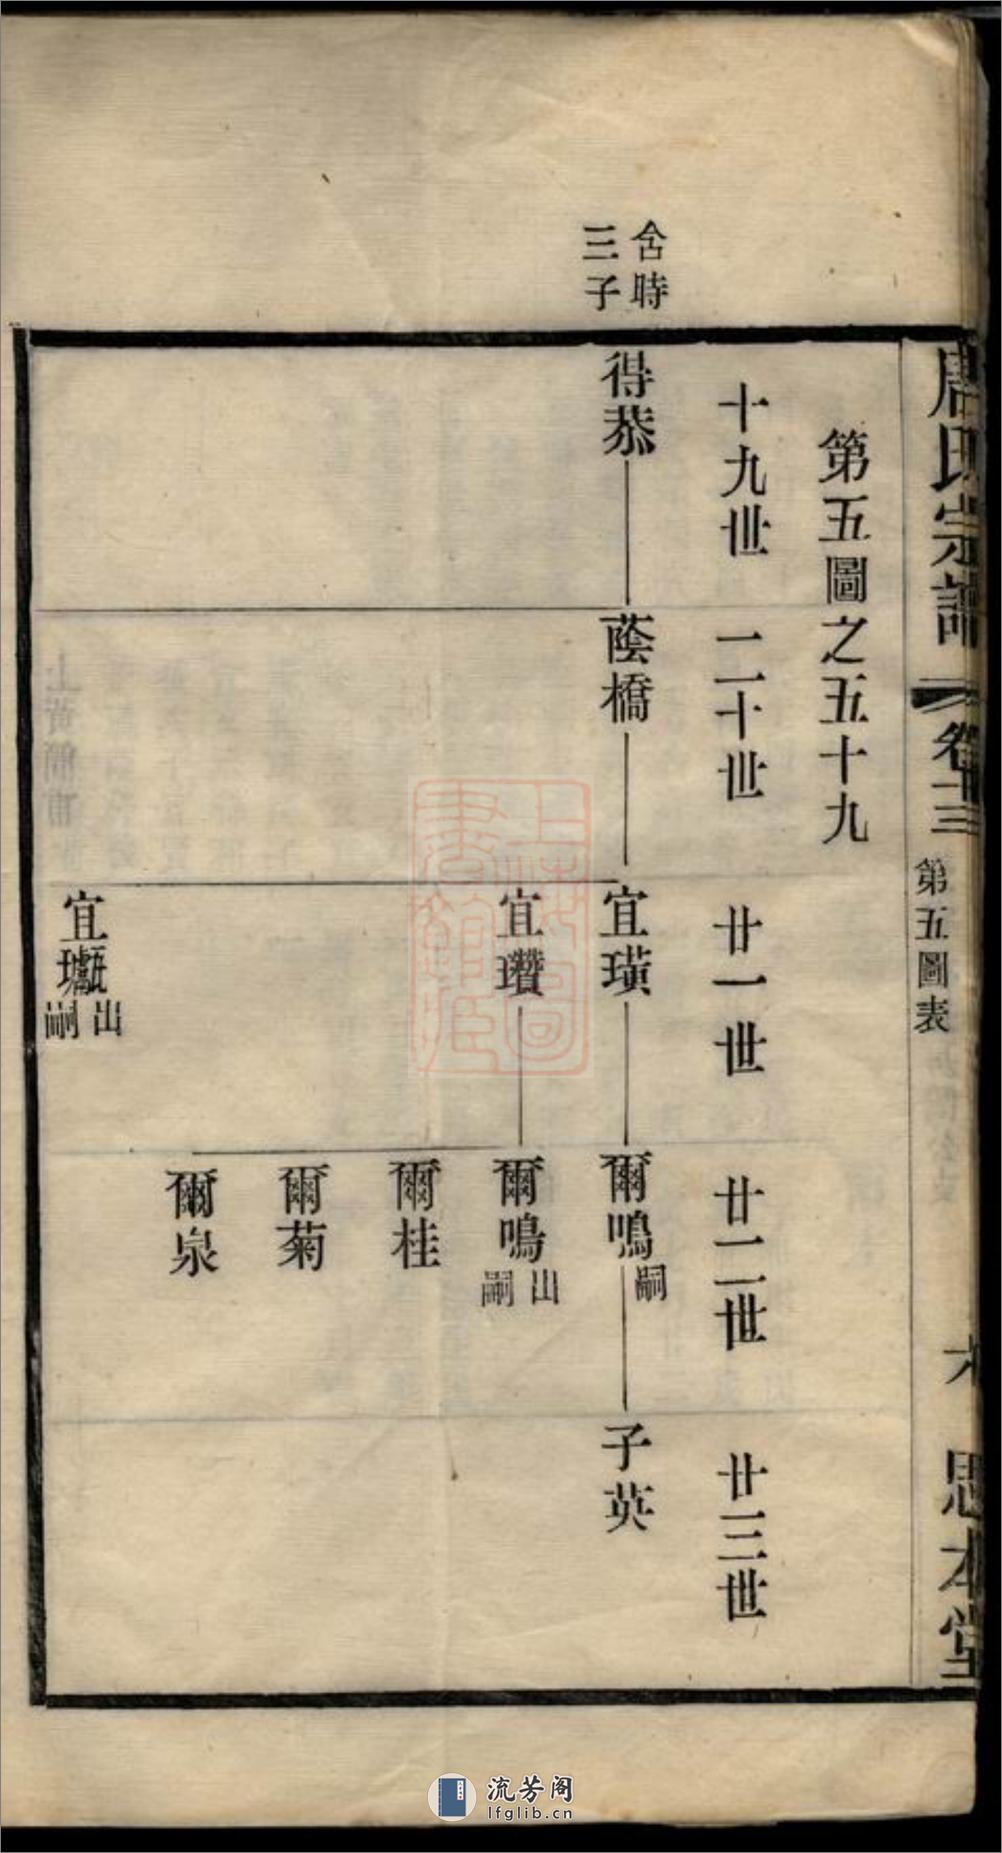 唐氏宗譜
卷十三
第五圖表
六
思本堂
第五圖之五十九
十九世
二十世
廿一世
廿二世
廿三世
含時
三子
得恭
蔭橋
宜璜
爾鳴
嗣
子英
宜瓚
爾鳴
出嗣
爾桂
爾菊
爾泉
宜
出嗣
上海圖書館藏
流芳阁
lfglib.cn